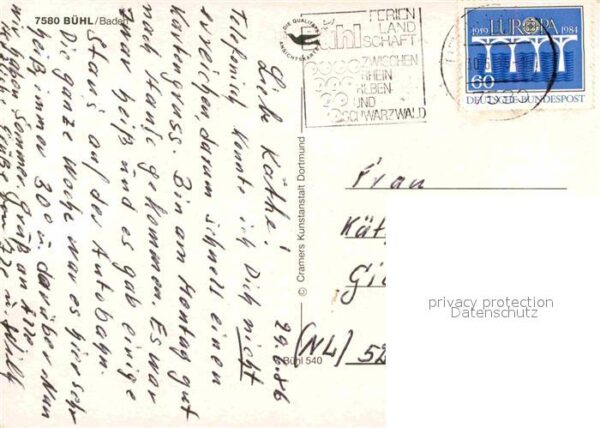 7580 BÜHL/Baden
DIE QUALITÄTS
ANSICHTSKARTE
Bühl
FERIEN
LAND
SCHAFT
ZWISCHEN
RHEIN
REBEN
UND
SCHWARZWALD
1959 EUROPA 1984
60
DEUTSCHE BUNDESPOST
29.6.86
Liebe Käthe!
Telefonisch konnte ich Dich nicht
erreichen darum schnell einen
Kartengruss. Bin am Montag gut
nach Hause gekommen. Es war
heiß und es gab einige
Staus auf der Autobahn.
Die ganze Woche war es hier sehr
heiß immer 30° u. darüber. Nun
wir haben Sommer. Gruß an Alle
Grüße
u. Willy
© Cramers Kunstanstalt Dortmund
Bühl 540
Frau
Kät
Gi
(NL) 52
privacy protection
Datenschutz